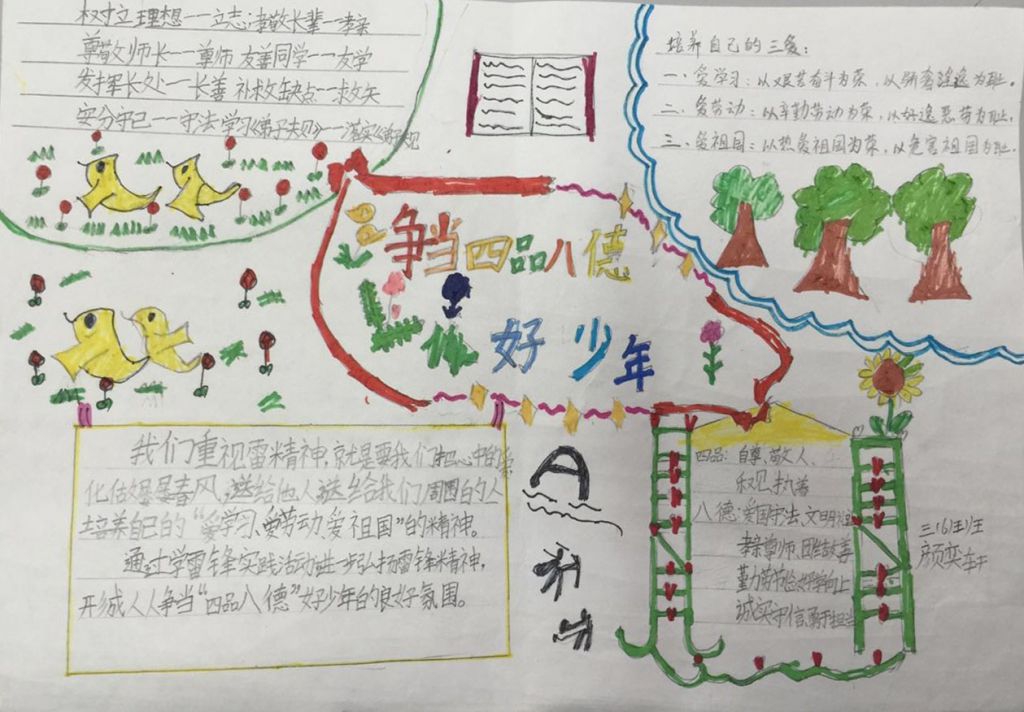 树立理想——立志;孝敬长辈—孝亲
尊敬师长——尊师 友善同学——友学
发挥长处——长善 补救缺点—救失
安分守己——守法 学习《弟子规》——落实《弟子规》
培养自己的三爱:
一、爱学习:以艰苦奋斗为荣,以骄奢淫逸为耻。
二、爱劳动:以辛勤劳动为荣,以好逸恶劳为耻,
三、爱祖国:以热爱祖国为荣,以危害祖国为耻。
争当四品八德
做好少年
我们重视雷精神,就是要我们把心中的爱
化做春风,送给他人送给我们周围的人
培养自己的“爱学习、爱劳动、爱祖国”的精神。
通过学雷锋实践活动进一步弘扬雷锋精神,
形成人人争当“四品八德”好少年的良好氛围。
四品:自尊、敬人、
八德:爱国守法、文明
孝亲尊师、团结友善
勤劳节俭好学向上
诚实守信勇于担当
三(6)班